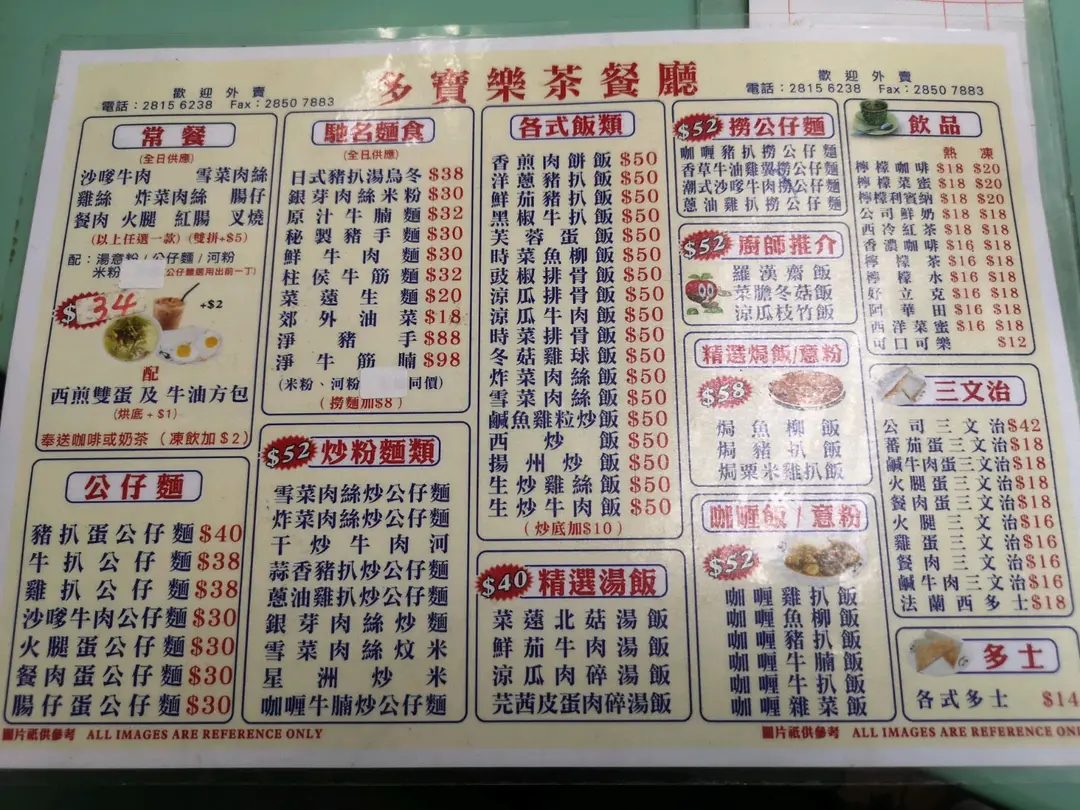 多寶樂茶餐廳
歡迎外賣
電話：2815 6238 Fax：2850 7883
歡迎外賣
電話：2815 6238 Fax：2850 7883
常餐
(全日供應)
沙嗲牛肉 雪菜肉絲
雞絲 炸菜肉絲 腸仔
餐肉 火腿 紅腸 叉燒
(以上任選一款) (雙拼+$5)
配：湯意粉/公仔麵/河粉
米粉 (公仔麵選用出前一丁)
$34
+$2
配
西煎雙蛋 及 牛油方包
(烘底+$1)
奉送咖啡或奶茶 (凍飲加$2)
公仔麵
豬扒蛋公仔麵 $40
牛扒公仔麵 $38
雞扒公仔麵 $38
沙嗲牛肉公仔麵 $30
火腿蛋公仔麵 $30
餐肉蛋公仔麵 $30
腸仔蛋公仔麵 $30
馳名麵食
(全日供應)
日式豬扒湯烏冬 $38
銀芽肉絲米粉 $30
原汁牛腩麵 $32
秘製豬手麵 $30
鮮牛肉麵 $30
柱侯牛筋麵 $32
菜遠生麵 $20
郊外油菜 $18
淨豬手 $88
淨牛筋腩 $98
(米粉、河粉 同價)
(撈麵加$8)
$52 炒粉麵類
雪菜肉絲炒公仔麵
炸菜肉絲炒公仔麵
干炒牛肉河
蒜香豬扒炒公仔麵
蔥油雞扒炒公仔麵
銀芽肉絲炒麵
雪菜肉絲炆米
星洲炒米
咖喱牛腩炒公仔麵
各式飯類
香煎肉餅飯 $50
洋蔥豬扒飯 $50
鮮茄豬扒飯 $50
黑椒牛扒飯 $50
芙蓉蛋飯 $50
時菜魚柳飯 $50
豉椒排骨飯 $50
涼瓜排骨飯 $50
涼瓜牛肉飯 $50
時菜排骨飯 $50
冬菇雞球飯 $50
炸菜肉絲飯 $50
雪菜肉絲飯 $50
鹹魚雞粒炒飯 $50
西炒飯 $50
揚州炒飯 $50
生炒雞絲飯 $50
生炒牛肉飯 $50
(炒底加$10)
$40 精選湯飯
菜遠北菇湯飯
鮮茄牛肉湯飯
涼瓜肉碎湯飯
芫茜皮蛋肉碎湯飯
$52 撈公仔麵
咖喱豬扒撈公仔麵
香草牛油雞翼撈公仔麵
潮式沙嗲牛肉撈公仔麵
蔥油雞扒撈公仔麵
$52 廚師推介
羅漢齋飯
菜膽冬菇飯
涼瓜枝竹飯
精選焗飯/意粉
$58
焗魚柳飯
焗豬扒飯
焗粟米雞扒飯
咖喱飯/意粉
$52
咖喱雞扒飯
咖喱魚柳飯
咖喱豬扒飯
咖喱牛腩飯
咖喱牛扒飯
咖喱雜菜飯
飲品
熱 凍
檸檬咖啡 $18 $20
檸檬菜蜜 $18 $20
檸檬利賓納 $18 $20
公司鮮奶 $18 $18
西冷紅茶 $18 $18
香濃咖啡 $16 $18
檸檬茶 $16 $18
檸檬水 $16 $18
好立克 $16 $18
阿華田 $16 $18
西洋菜蜜 $16 $18
可口可樂 $12
三文治
公司三文治 $42
蕃茄蛋三文治 $18
鹹牛肉蛋三文治 $18
火腿蛋三文治 $18
餐肉蛋三文治 $18
火腿三文治 $16
雞蛋三文治 $16
餐肉三文治 $16
鹹牛肉三文治 $16
法蘭西多士 $18
多士
各式多士 $14
圖片祇供參考 ALL IMAGES ARE REFERENCE ONLY
圖片祇供參考 ALL IMAGES ARE REFERENCE ONL